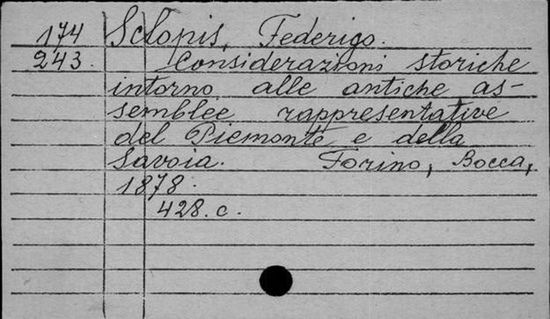 174 Sclopis, Federigo.
243. Considerazioni storiche
intorno alle antiche as-
semblee rappresentative
del Piemonte e della
Savoia. Torino, Bocca,
1878.
428. c.